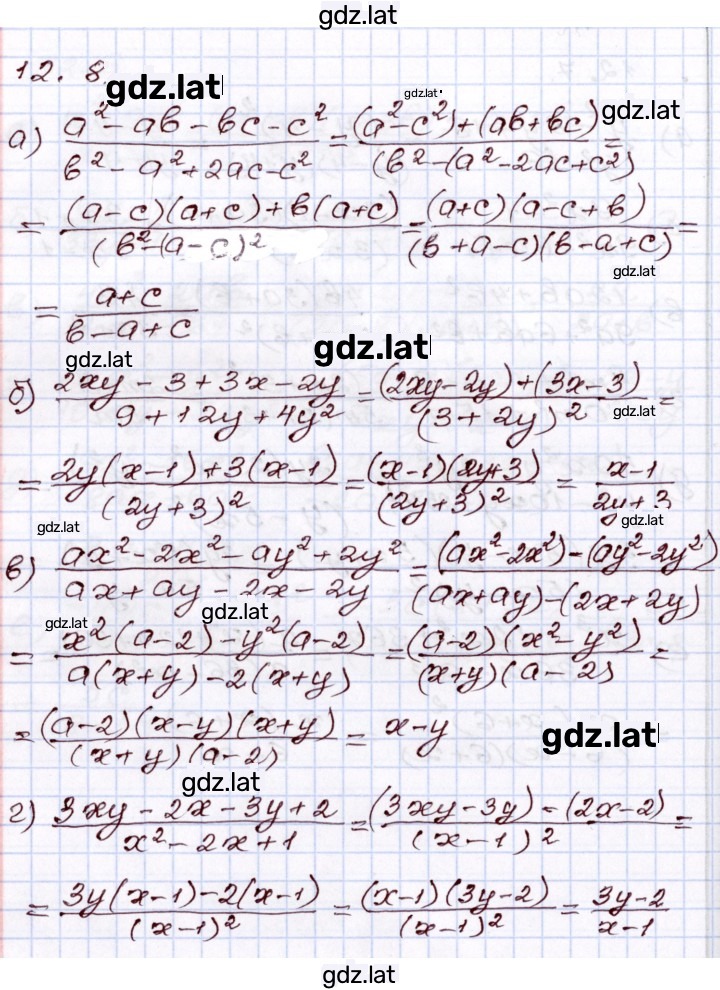 gdz.lat
12.8 gdz.lat
gdz.lat gdz.lat
а) (a² - ab - bc - c²)/(b² - a² + 2ac - c²) = ((a² - c²) + (ab + bc))/(b² - (a² - 2ac + c²) =
= ((a - c)(a + c) + b(a + c))/(b² - (a - c)² = ((a + c)(a - c + b))/((b + a - c)(b - a + c)) =
gdz.lat
= (a + c)/(b - a + c)
gdz.lat gdz.lat
б) (2xy - 3 + 3x - 2y)/(9 + 12y + 4y²) = ((2xy - 2y) + (3x - 3))/(3 + 2y)² =
gdz.lat
= (2y(x - 1) + 3(x - 1))/(2y + 3)² = ((x - 1)(2y + 3))/(2y + 3)² = (x - 1)/(2y + 3)
gdz.lat gdz.lat
в) (ax² - 2x² - ay² + 2y²)/(ax + ay - 2x - 2y) = ((ax² - 2x²) - (ay² - 2y²))/((ax + ay) - (2x + 2y))
gdz.lat gdz.lat
= (x²(a - 2) - y²(a - 2))/(a(x + y) - 2(x + y)) = ((a - 2)(x² - y²))/((x + y)(a - 2)) =
= ((a - 2)(x - y)(x + y))/((x + y)(a - 2)) = x - y
gdz.lat
gdz.lat
г) (3xy - 2x - 3y + 2)/(x² - 2x + 1) = ((3xy - 3y) - (2x - 2))/(x - 1)² =
= (3y(x - 1) - 2(x - 1))/(x - 1)² = ((x - 1)(3y - 2))/(x - 1)² = (3y - 2)/(x - 1)
gdz.lat